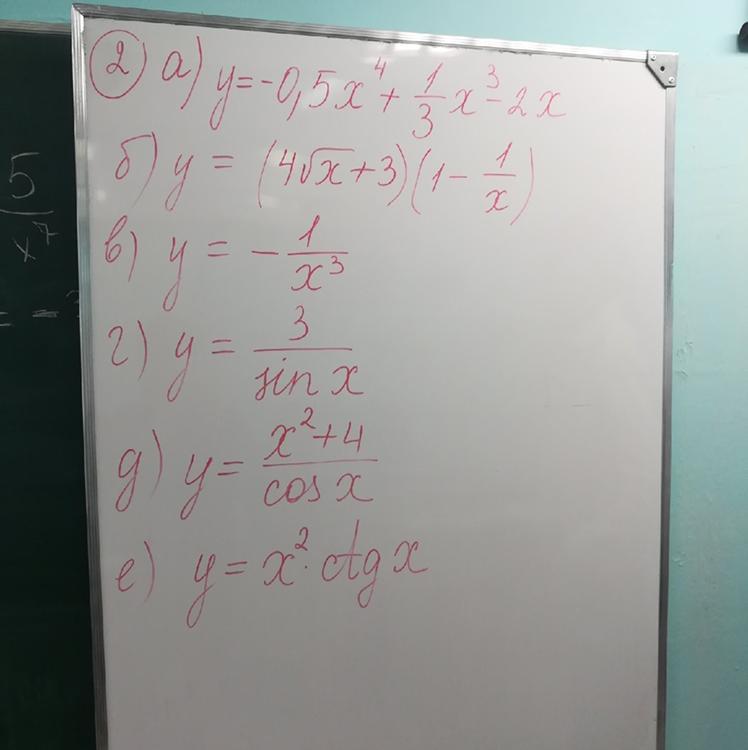 2) а) y = -0,5x⁴ + 1/3 x³ - 2x
б) y = (4√x + 3)(1 - 1/x)
в) y = - 1/x³
г) y = 3/sin x
д) y = x²+4/cos x
е) y = x² · ctg x
5/x⁷